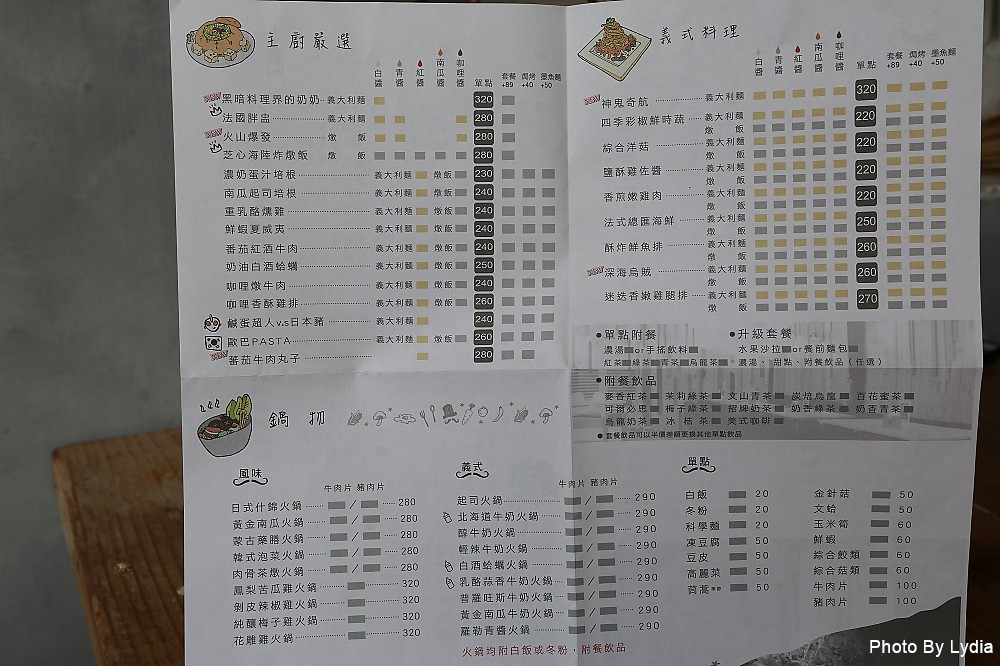 主廚嚴選
白醬 青醬 紅醬 南瓜醬 咖哩醬 單點 套餐+89 焗烤+40 墨魚麵+50
NEW 黑暗料理界的奶奶 義大利麵 320
法國胖盅 義大利麵 280
NEW 火山爆發 燉飯 280
芝心海陸炸燉飯 燉飯 280
濃奶蛋汁培根 義大利麵 燉飯 230
南瓜起司培根 義大利麵 燉飯 240
重乳酪燻雞 義大利麵 燉飯 240
鮮蝦夏威夷 義大利麵 燉飯 240
番茄紅酒牛肉 義大利麵 燉飯 240
奶油白酒蛤蠣 義大利麵 燉飯 250
咖哩燉牛肉 義大利麵 燉飯 240
咖哩香酥雞排 義大利麵 燉飯 260
鹹蛋超人v.s日本豬 義大利麵 240
歐巴PASTA 義大利麵 燉飯 260
NEW 蕃茄牛肉丸子 280
義式料理
白醬 青醬 紅醬 南瓜醬 咖哩醬 單點 套餐+89 焗烤+40 墨魚麵+50
NEW 神鬼奇航 義大利麵 320
四季彩椒鮮時蔬 義大利麵 燉飯 220
綜合洋菇 義大利麵 燉飯 220
鹽酥雞佐醬 義大利麵 燉飯 220
香煎嫩雞肉 義大利麵 燉飯 220
法式總匯海鮮 義大利麵 燉飯 250
酥炸鮮魚排 義大利麵 燉飯 260
NEW 深海烏賊 義大利麵 燉飯 260
迷迭香嫩雞腿排 義大利麵 燉飯 270
•單點附餐
濃湯 or手搖飲料
紅茶 綠茶 青茶 烏龍茶
•升級套餐
水果沙拉 or餐前麵包
濃湯、甜點、附餐飲品(任選)
•附餐飲品
麥香紅茶 茉莉綠茶 文山青茶 炭焙烏龍 百花蜜茶
可爾必思 梅子綠茶 招牌奶茶 奶香綠茶 奶香青茶
烏龍奶茶 冰桔茶 美式咖啡
●套餐飲品可以半價差額更換其他單點飲品
鍋物
風味
牛肉片 豬肉片
日式什錦火鍋 / 280
黃金南瓜火鍋 / 280
蒙古藥膳火鍋 / 280
韓式泡菜火鍋 / 280
肉骨茶燉火鍋 / 280
鳳梨苦瓜雞火鍋 320
剝皮辣椒雞火鍋 320
純釀梅子雞火鍋 320
花雕雞火鍋 320
義式
牛肉片 豬肉片
起司火鍋 / 290
北海道牛奶火鍋 / 290
醇牛奶火鍋 / 290
輕辣牛奶火鍋 / 290
白酒蛤蠣火鍋 / 290
乳酪蒜香牛奶火鍋 / 290
普羅旺斯牛奶火鍋 / 290
黃金南瓜牛奶火鍋 / 290
羅勒青醬火鍋 / 290
火鍋均附白飯或冬粉，附餐飲品
單點
白飯 20
冬粉 20
科學麵 20
凍豆腐 50
豆皮 50
高麗菜 50
茼蒿 季節 50
金針菇 50
文蛤 50
玉米筍 60
鮮蝦 60
綜合餃類 60
綜合菇類 60
牛肉片 100
豬肉片 100
Photo By Lydia